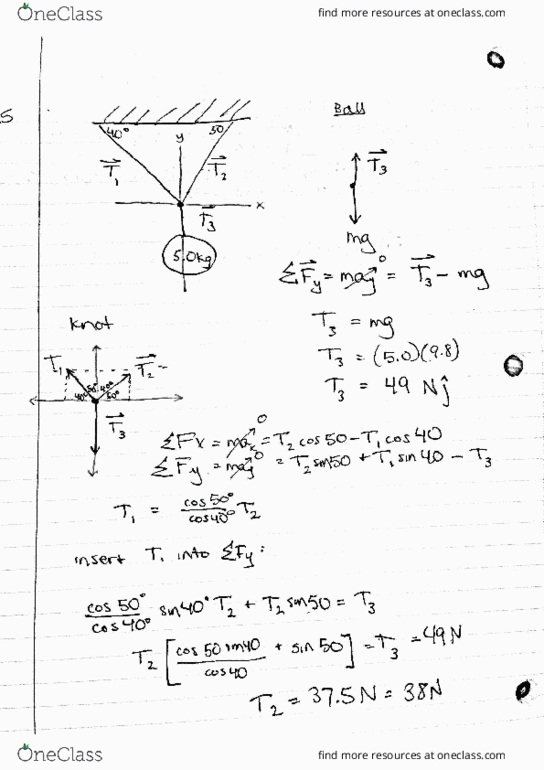 OneClass find more resources at oneclass.com
S
Ball
40° y 50
T₁ T₂
x
T₃
5.0kg
T₃
mg
ΣFy = may⁰ = T₃ - mg
T₃ = mg
T₃ = (5.0)(9.8)
T₃ = 49 Nĵ
Knot
T₁ T₂
40° 50° 40° 50°
T₃
ΣFx = max⁰ = T₂ cos50 - T₁ cos 40
ΣFy = may⁰ = T₂ sin50 + T₁ sin 40 - T₃
T₁ = cos50°/cos40° T₂
insert T₁ into ΣFy:
cos 50°/cos 40° sin40° T₂ + T₂ sin50 = T₃
T₂ [cos 50 sin40/cos40 + sin 50] = T₃ = 49N
T₂ = 37.5N = 38N
OneClass find more resources at oneclass.com